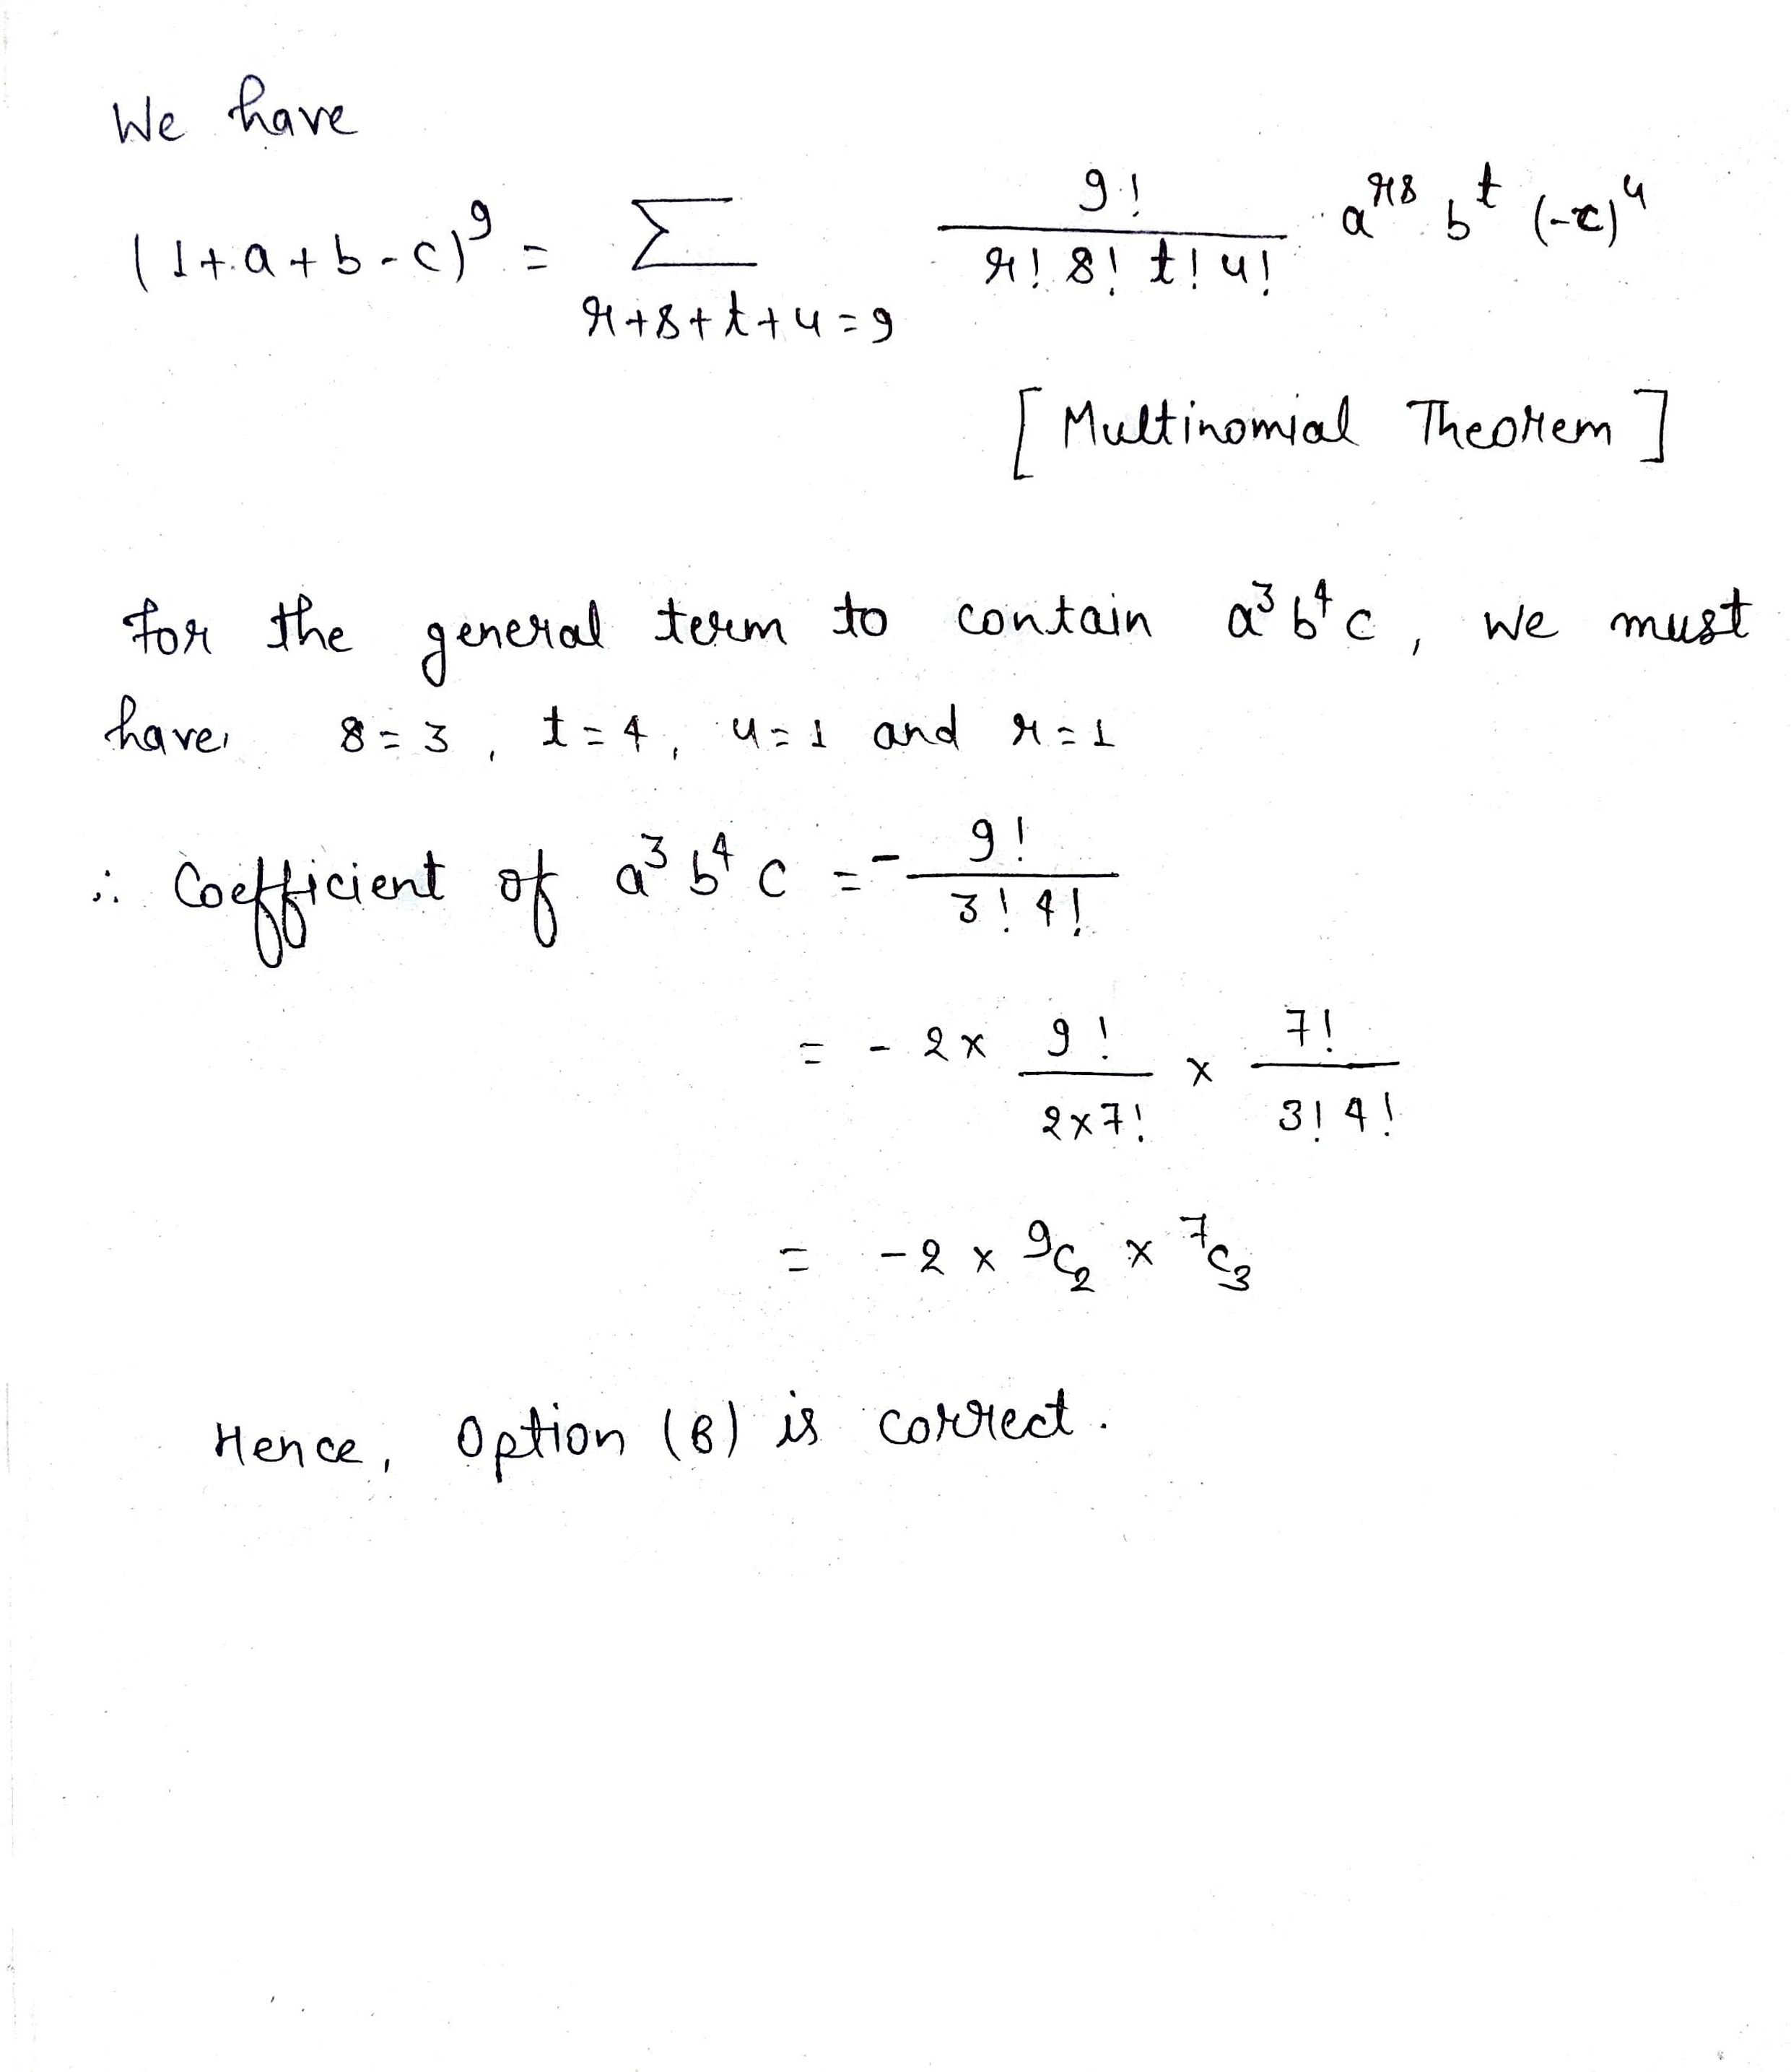 We have
(1+a+b-c)^9 = ∑_{r+s+t+u=9} 9!/(r! s! t! u!) a^{rs} b^t (-c)^u
[Multinomial Theorem]
For the general term to contain a^3 b^4 c, we must
have s=3, t=4, u=1 and r=1
∴ Coefficient of a^3 b^4 c = - 9!/(3! 4!)
= - 2 × 9!/(2×7!) × 7!/(3! 4!)
= -2 × ^9C_2 × ^7C_3
Hence, Option (B) is correct.